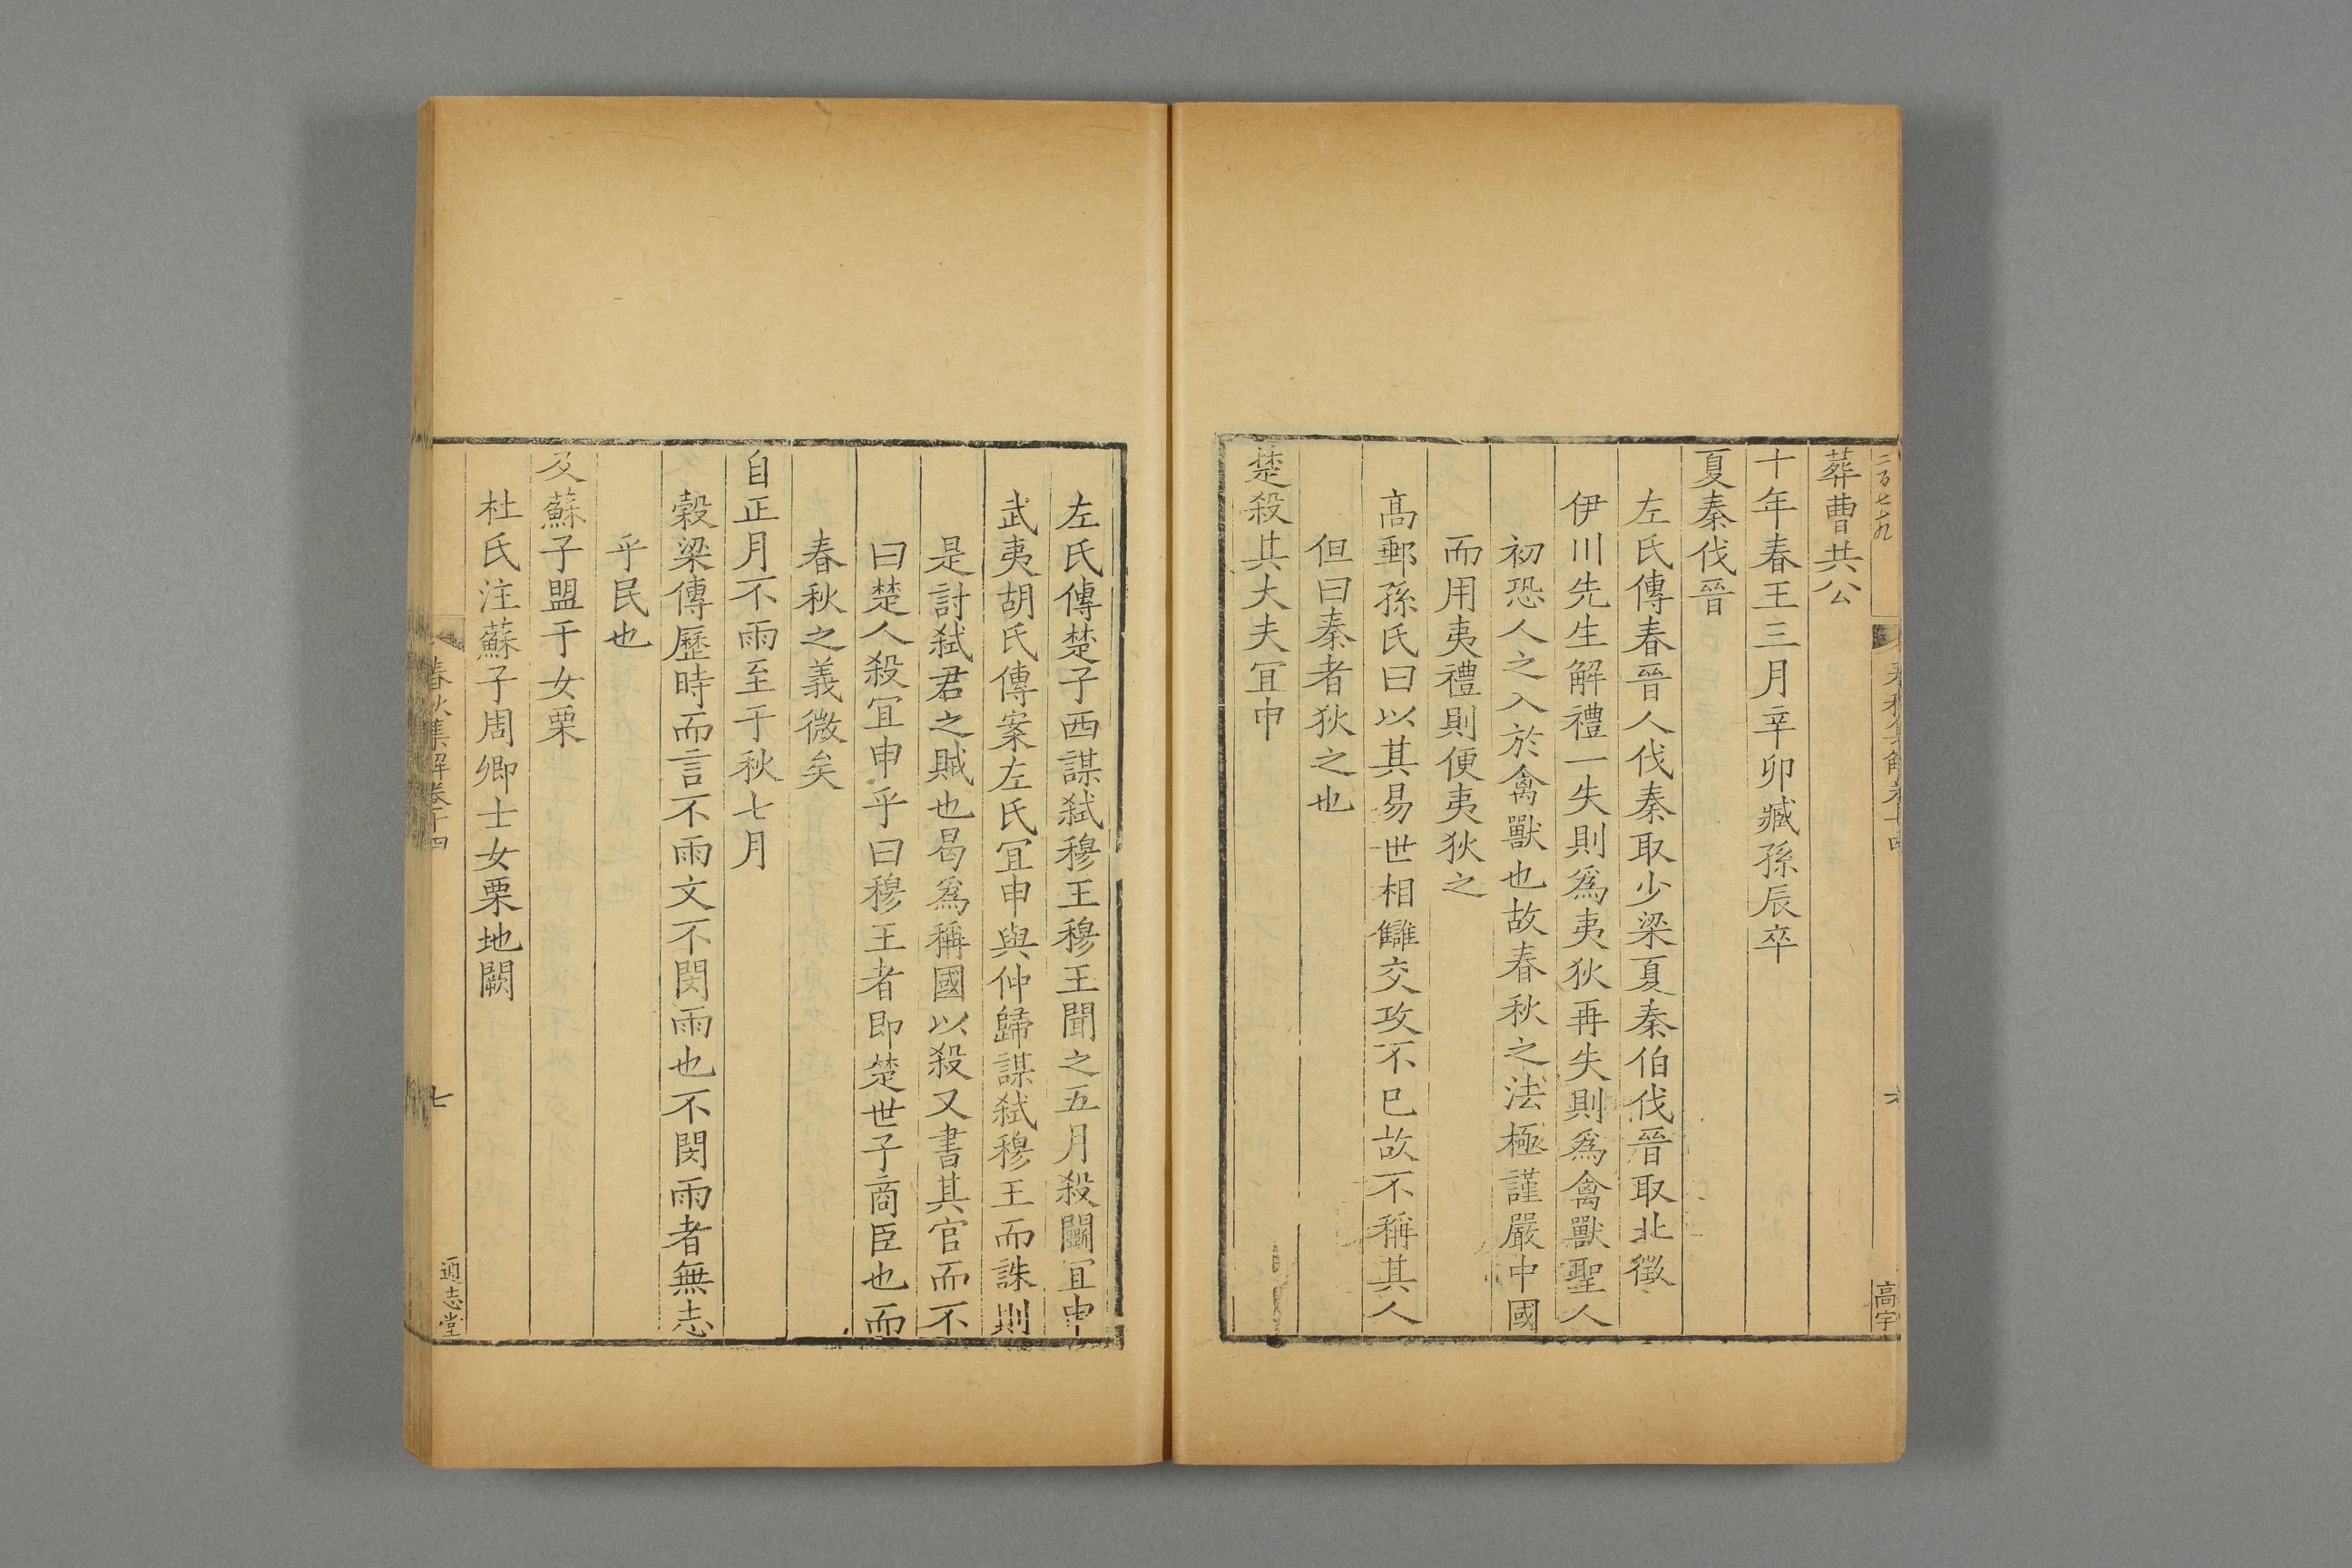 二百七十九
春秋集解卷十四
六
高宇
葬曹共公
十年春王三月辛卯臧孫辰卒
夏秦伐晉
左氏傳春晉人伐秦取少梁夏秦伯伐晉取北徵
伊川先生解禮一失則爲夷狄再失則爲禽獸聖人
初恐人之入於禽獸也故春秋之法極謹嚴中國
而用夷禮則便夷狄之
髙郵孫氏曰以其易世相讎交攻不巳故不稱其人
但曰秦者狄之也
楚殺其大夫冝申
左氏傳楚子西謀弑穆王穆王聞之五月殺鬬冝申
武夷胡氏傳案左氏冝申與仲歸謀弑穆王而誅則
是討弑君之賊也曷爲稱國以殺又書其官而不
曰楚人殺冝申乎曰穆王者即楚世子商臣也而
春秋之義微矣
自正月不雨至于秋七月
穀梁傳歷時而言不雨文不閔雨也不閔雨者無志
乎民也
及蘇子盟于女栗
杜氏注蘇子周卿士女栗地闕
春秋集解卷十四
七
通志堂